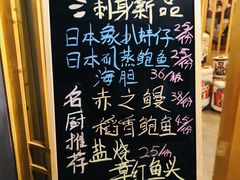 三刺身新品
日本象扒蚌仔 25/份
日本刁蒸鲍鱼 25/份
海胆 36/板
名厨推荐
赤之鳗 38/份
稻香鲍鱼 45/份
盐烧 25/份
章红鱼头